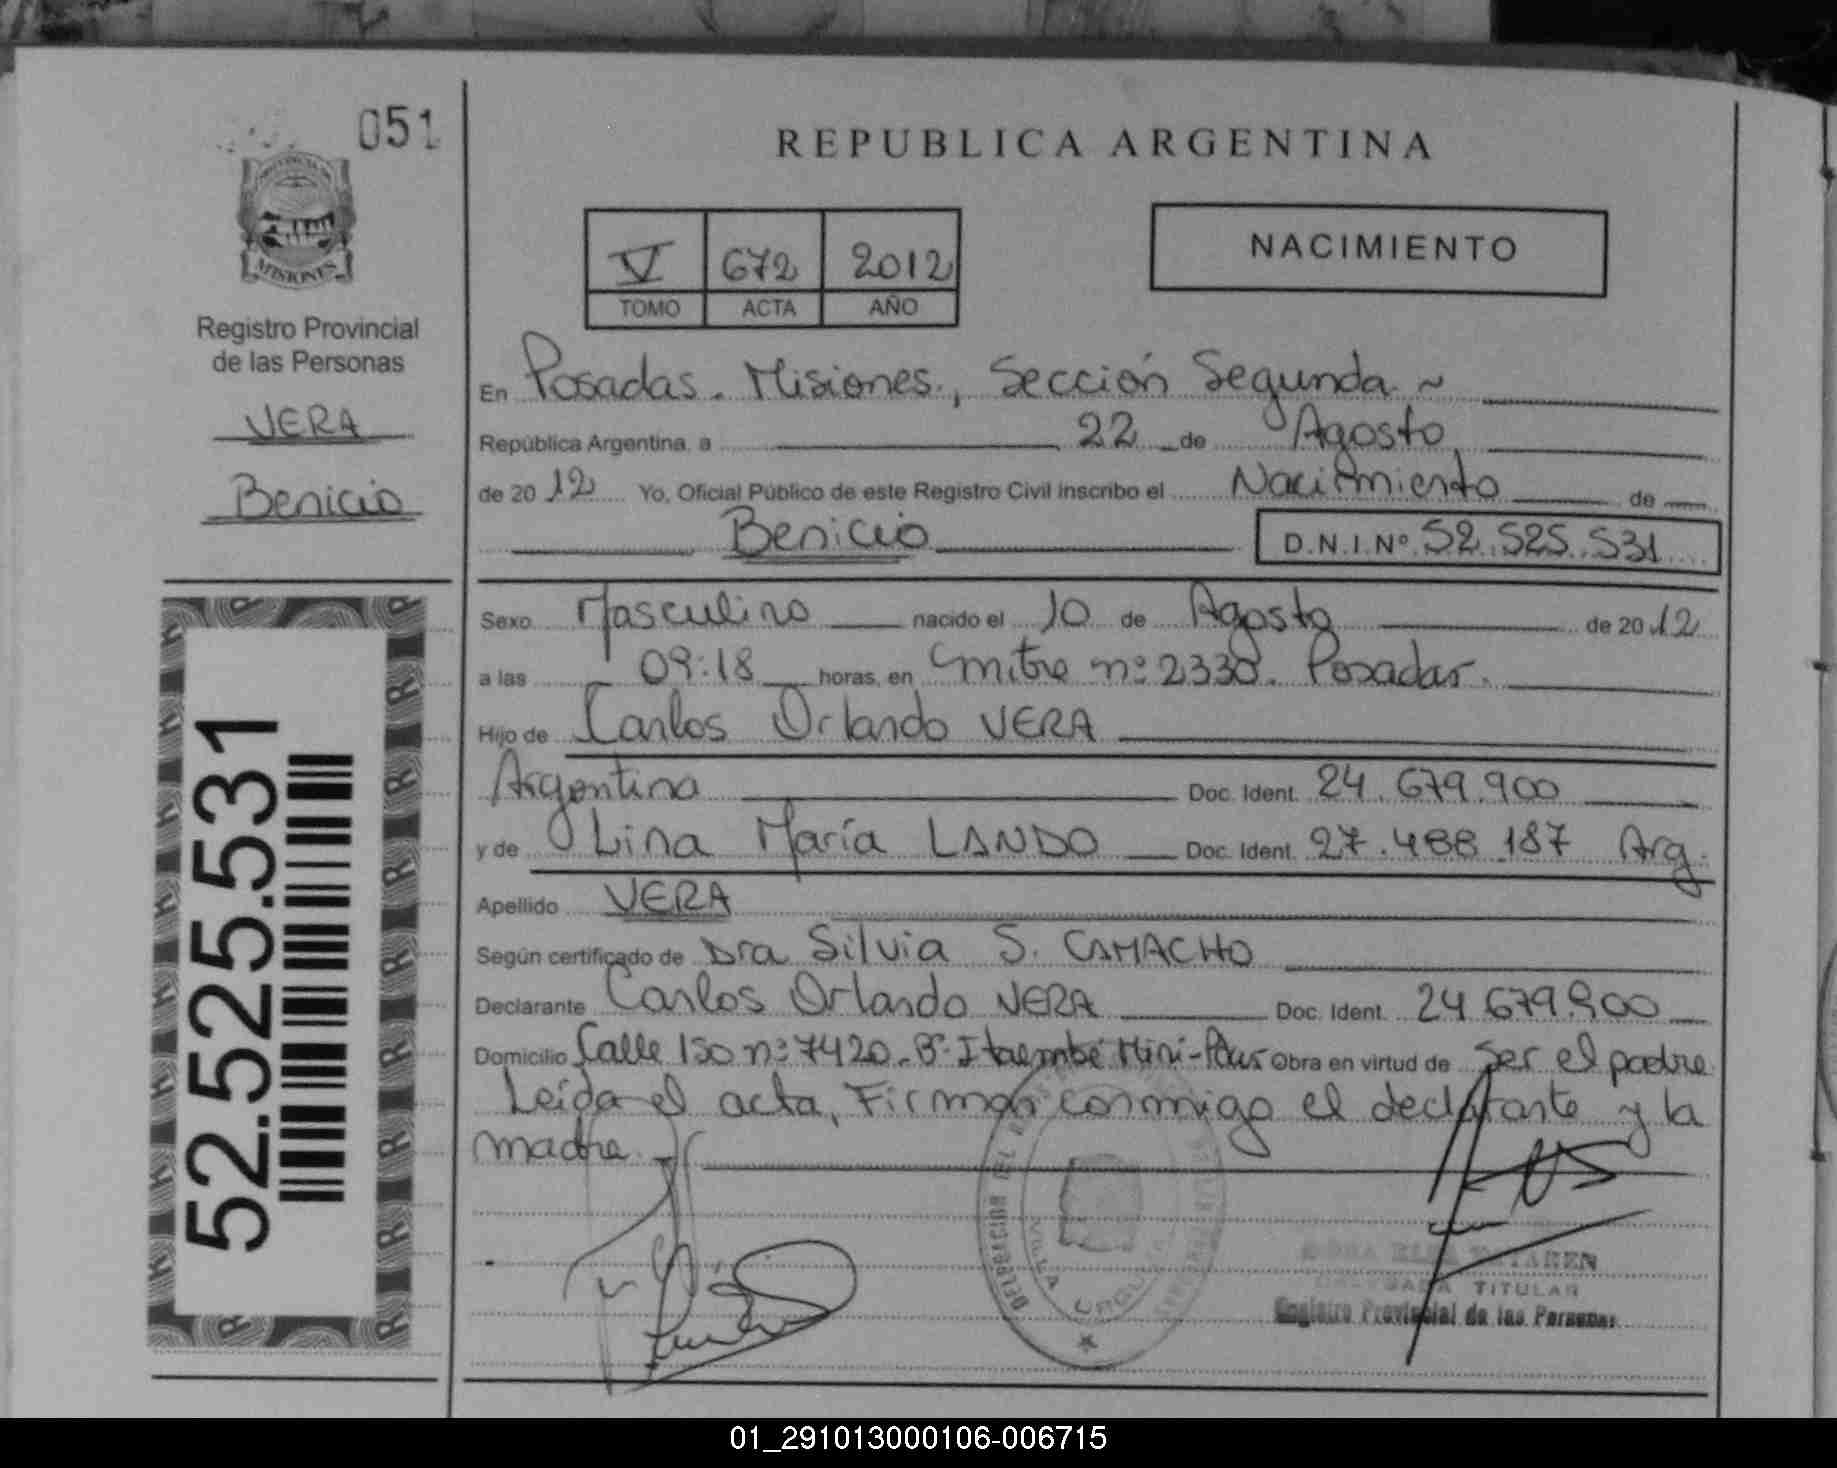 051
REPUBLICA ARGENTINA
MISIONES
Registro Provincial
de las Personas
VERA
Benicio
52.525.531
V 672 2012
TOMO ACTA AÑO
NACIMIENTO
En Posadas. Misiones., Sección Segunda. ~
República Argentina, a 22 de Agosto
de 2012 Yo, Oficial Público de este Registro Civil inscribo el Nacimiento de
Benicio D.N.I.Nº 52.525.531
Sexo Masculino nacido el 10 de Agosto de 2012
a las 09:18 horas, en Mitre nº 2330. Posadas.
Hijo de Carlos Orlando VERA
Argentina Doc. Ident. 24.679.900
y de Lina María LANDO Doc. Ident. 27.488.187 Arg.
Apellido VERA
Según certificado de Dra Silvia S. CAMACHO
Declarante Carlos Orlando VERA Doc. Ident. 24.679.900
Domicilio Calle 150 nº 7420. Bº Itaembé Miní-Pdas Obra en virtud de ser el padre
Leída el acta, Firman conmigo el declarante y la
madre.
DELEGACION DEL
VILLA URQUIZA
TITULAR
Registro Provincial de las Personas
01_291013000106-006715